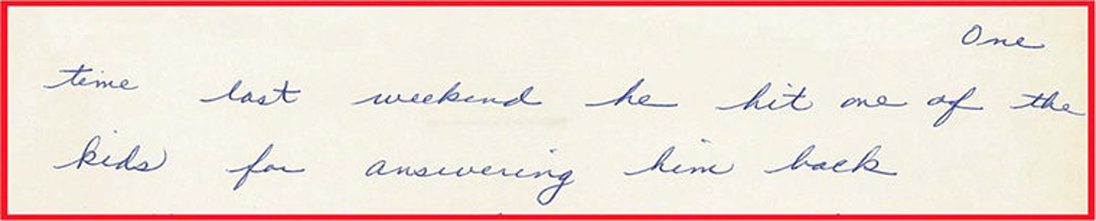 One
time last weekend he hit one of the
kids for answering him back